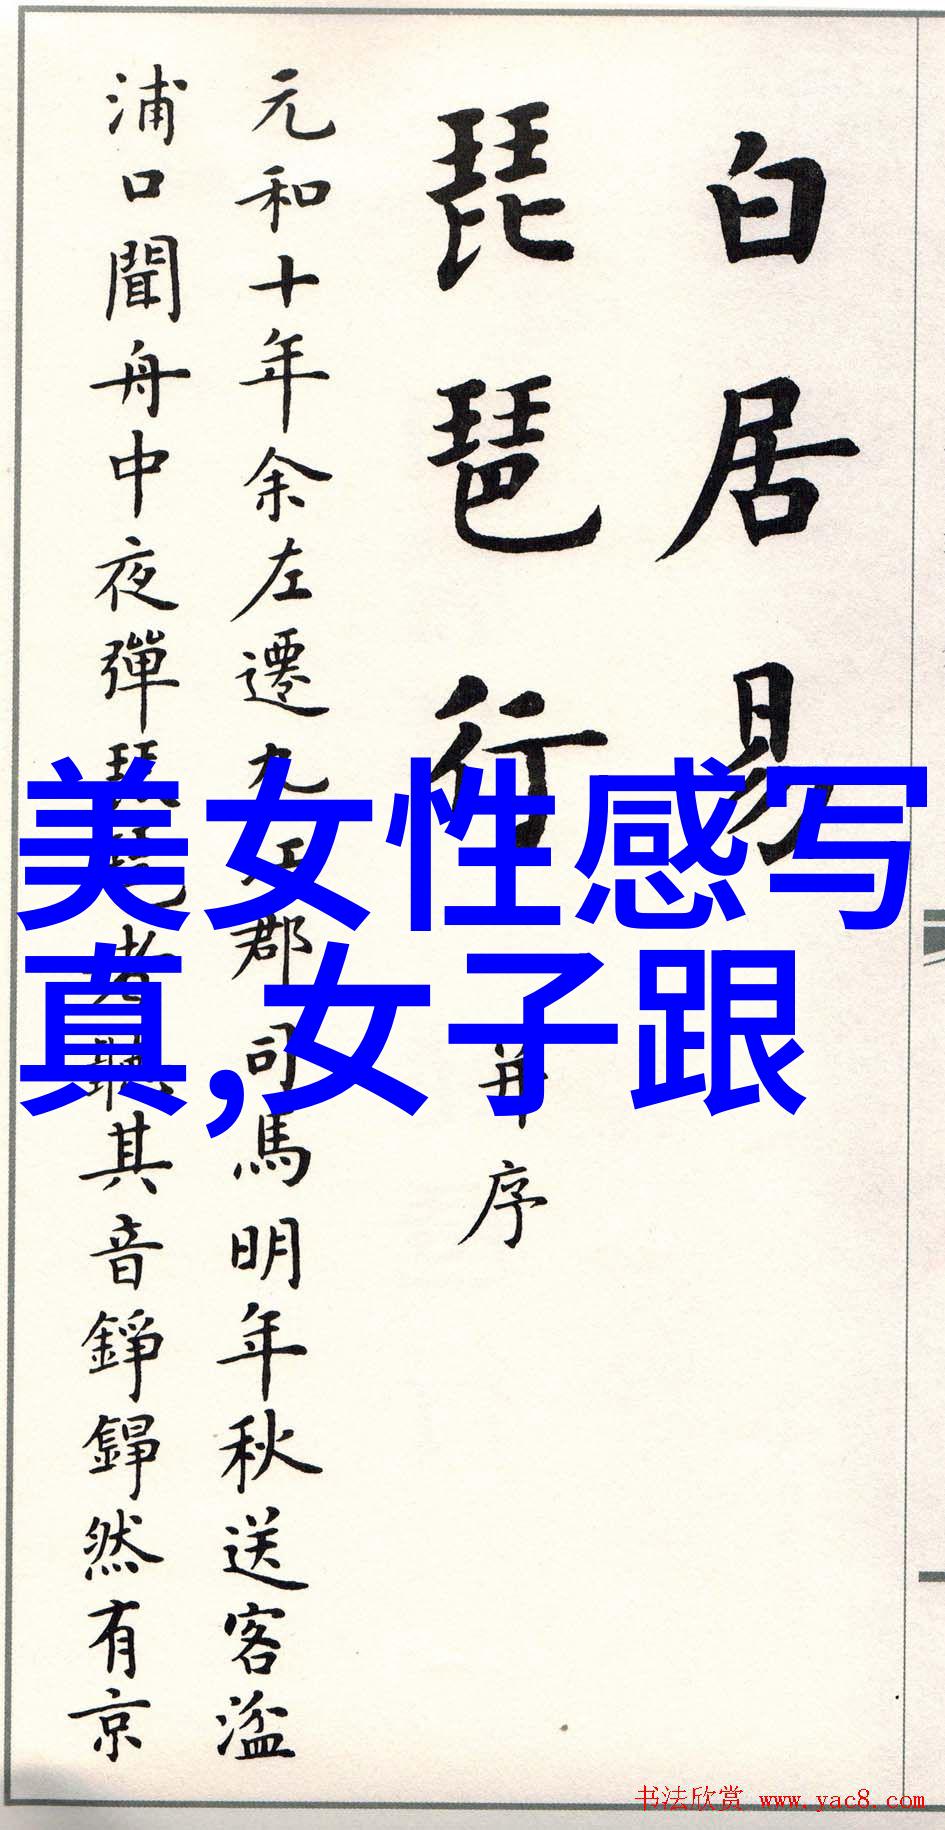 白居易
琵琶行
并序
元和十年余左遷九江郡司馬明年秋送客湓
浦口聞舟中夜彈琵琶者聽其音錚錚然有京
美女性感写
真,女子跟
书法欣赏 www.yac8.com